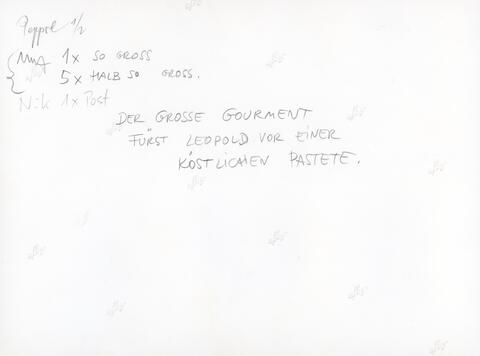 Peppel 1/2
1x SO GROSS
5x HALB SO GROSS.
Nik 1x Post
DER GROSSE GOURMENT
FÜRST LEOPOLD VOR EINER
KÖSTLICHEN PASTETE.